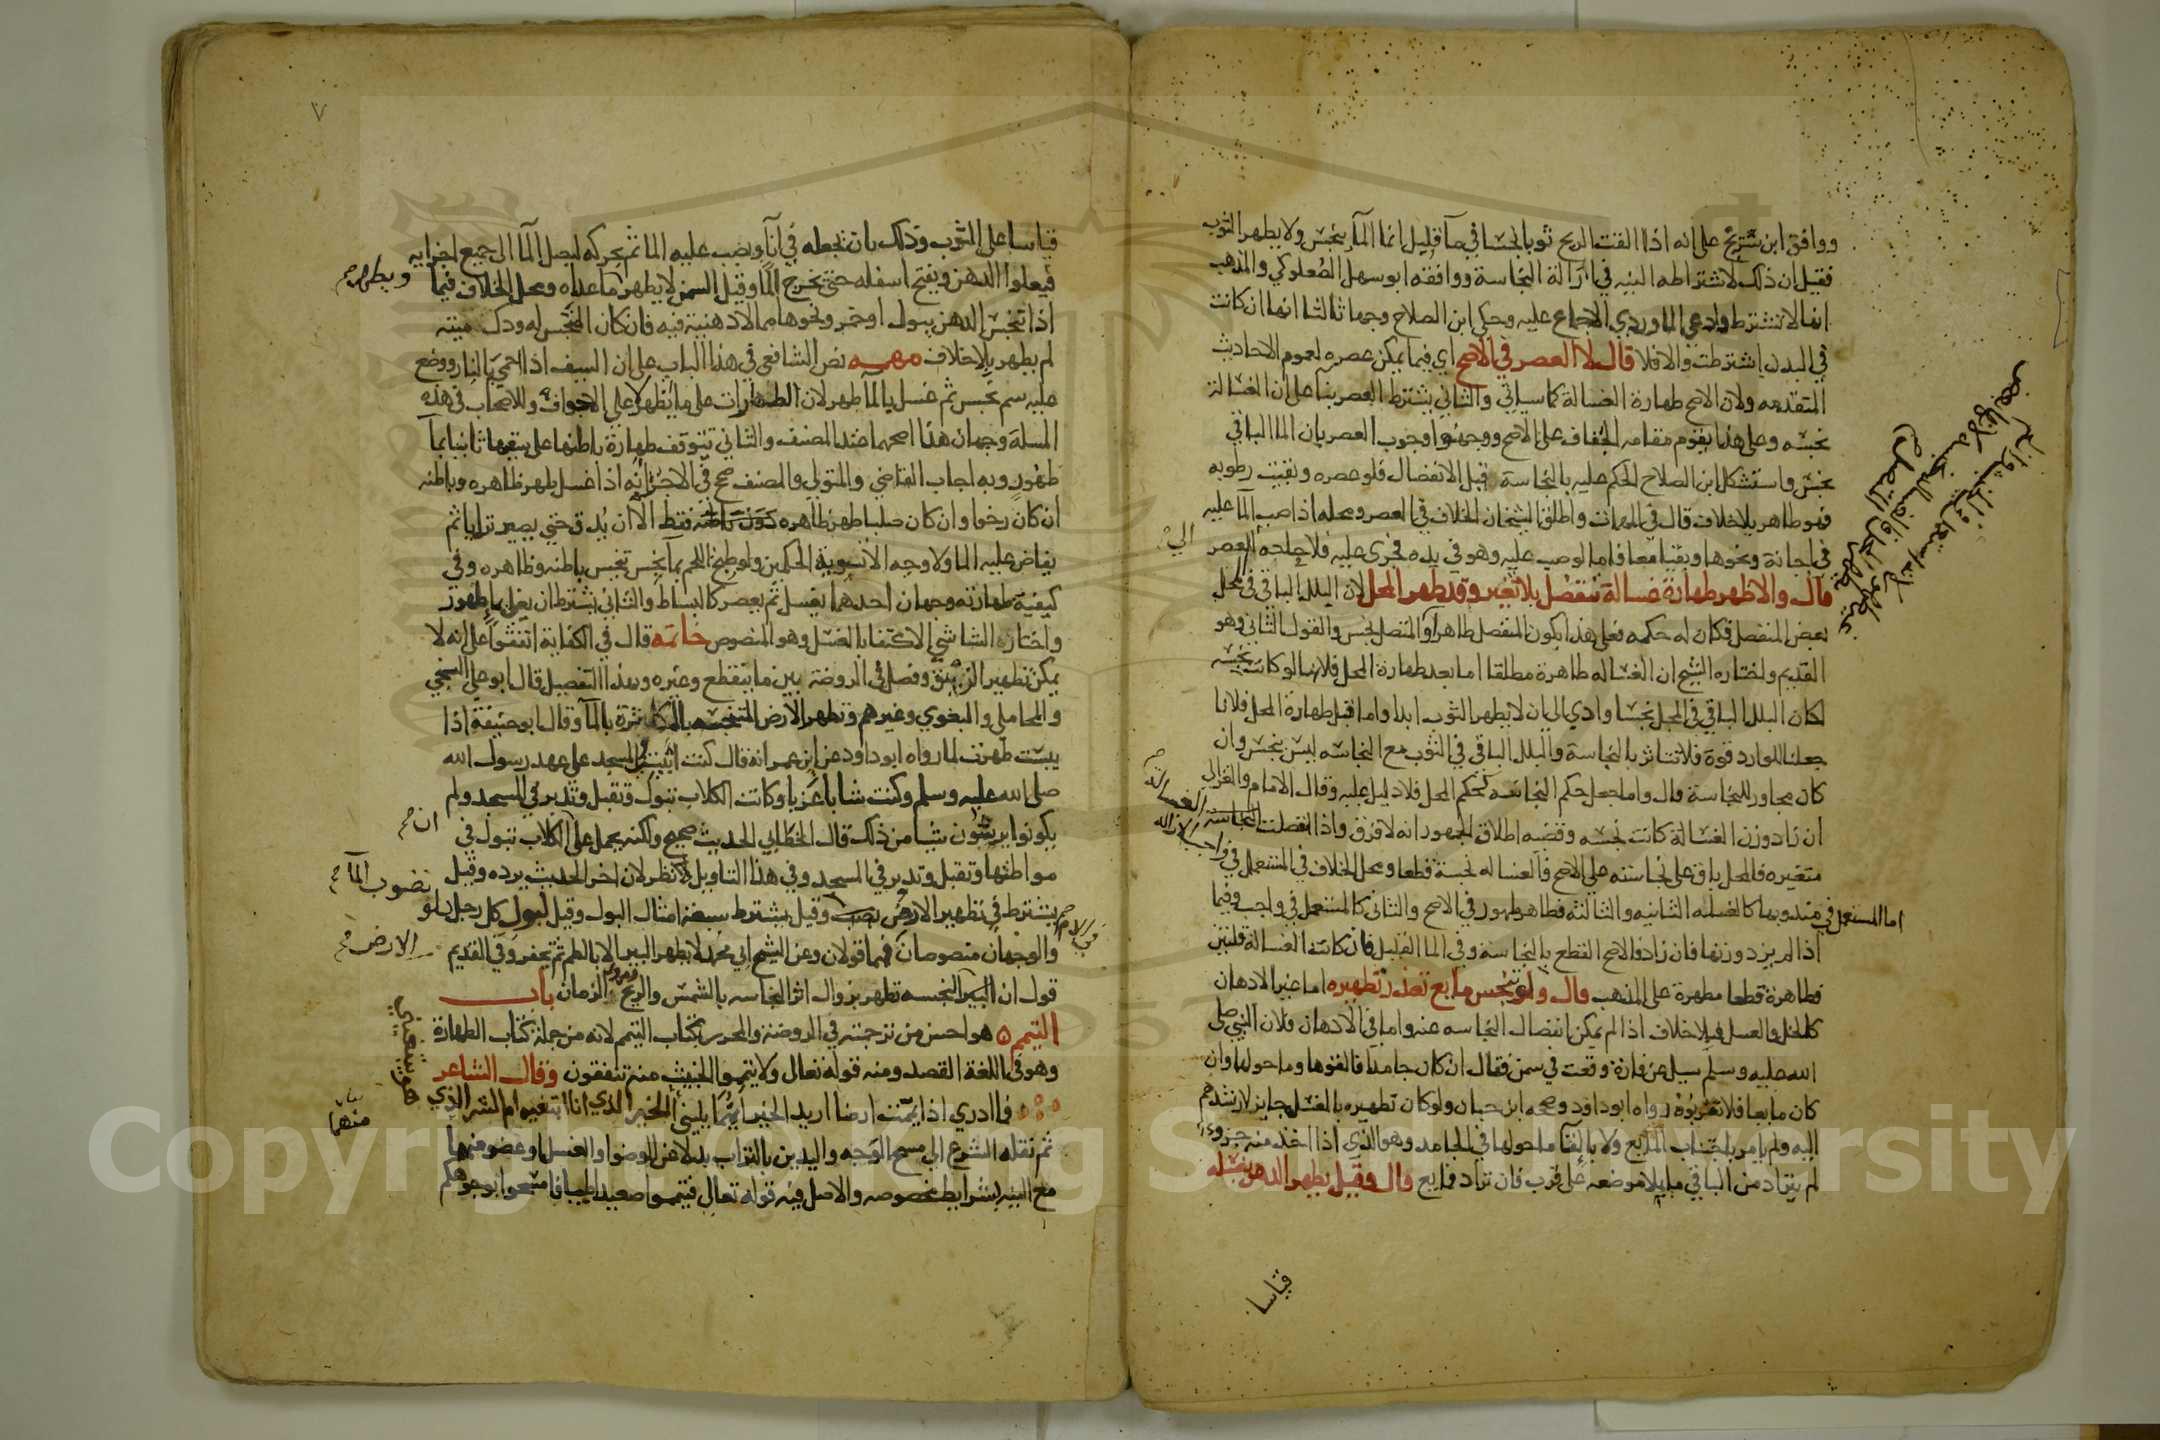 ووافق ابن سريج على انه اذا القت الريح ثوبا نجسا في ماء قليل انما الماء ينجس ولا يطهر الثوب
فقيل ان ذلك لاشتراطه النيه في ازالة النجاسة ووافقه ابو سهل الصعلوكي والمذهب
انها لا تشترط وادعى الماوردي الاجماع عليه وحكى ابن الصلاح وجها ثالثا انها ان كانت
في البدن اشترطت والا فلا قال لا العصر في الاصح اي فيما يمكن عصره لعموم الاحاديث
المتقدمه ولان الاصح طهارة الغسالة كما سياتي والثاني يشترط العصر بنا على ان الغسالة
نجسه وعلى هذا يقوم مقامه الجفاف على الاصح ووجهوا وجوب العصر بان الما الباقي
نجس واستشكل ابن الصلاح الحكم عليه بالنجاسة قبل الانفصال فلو عصره وبقيت رطوبه
فهو طاهر بلا خلاف قال في المهمات واطلق الشيخان الخلاف في العصر ومحله اذا صب الماء عليه
في اجانة ونحوها وبقيا معا فاما لو صب عليه وهو في يده فجرى عليه فلا حاجه الى العصر
قال والاظهر طهارة غسالة تنفصل بلا تغير وقد طهر المحل لان البلل الباقي في المحل
بعض المنفصل فكان له حكمه فعلى هذا يكون المنفصل طاهرا والمتصل نجس والقول الثاني وهو
القديم واختاره الشيخ ان الغساله طاهرة مطلقا اما بعد طهارة المحل فلانها لو كانت نجسه
لكان البلل الباقي في المحل نجسا وادي الى ان لا يطهر الثوب ابدا واما قبل طهارة المحل فلانا
جعلنا للوارد قوة فلا تتاثر بالنجاسة والبلل الباقي في الثوب مع النجاسه ليس بنجس وان
كان مجاورا للنجاسة قال واما جعل حكم النجاسه كحكم المحل فلا دليل عليه وقال الامام والغزالي
ان زاد وزن الغسالة كانت نجسه وقضيه اطلاق الجمهور انه لا فرق واذا انفصلت النجاسه الغساله
متغيره فالمحل باق على نجاسته على الاصح فالغساله نجسة قطعا ومحل الخلاف في المستعمل في واجب الازاله
اما المستعمل في مندوبها كالغسله الثانيه والثالثه فطاهر طهور في الاصح والثاني كالمستعمل في واجب وفيما
اذا لم يزد وزنها فان زاد فالاصح القطع بالنجاسة وفي الما القليل فان كانت الغسالة قلتين
فطاهرة قطعا مطهرة على المذهب قال ولو نجس مايع تعذر تطهيره اما غير الادهان
كالخل والعسل فبلا خلاف اذا لم يمكن انفصال النجاسه عنه واما في الادهان فلان النبي صلى
الله عليه وسلم سيل عن فارة وقعت في سمن فقال ان كان جامدا فالقوها وما حولها وان
كان مايعا فلا تقربوه رواه ابو داود وصححه ابن حبان ولو كان تطهيره بالغسل جايز لارشدهم
اليه ولم يامر باجتناب المايع ولا بالقاء ما حولها في الجامد وهو الذي اذا اخذ منه جزو
لم يتراد من الباقي ما يملا موضعه على قرب فان تراد فمايع قال وقيل يطهر الدهن بغسله
قياسا
٧
قياسا على الثوب وذلك بان يجعله في اناء ويصب عليه الما ثم يحركه ليصل الما الى جميع اجزايه
فيعلوا الدهن ويفتح اسفله حتى يخرج الما وقيل السمن لا يطهر ما عداه ومحل الخلاف فيما ويطهر
اذا تنجس الدهن ببول او خمر ونحوها مما لا دهنية فيه فان كان المنجس له ودك ميتة
لم يطهر بلا خلاف مهمه نص الشافعي في هذا الباب على ان السيف اذا احمي بالنار ووضع
عليه سم نجس ثم غسل بالما طهر لان الطهارات على ما يظهر لا على الاجواف وللاصحاب في هذه
المسلة وجهان هذا اصحهما عند المصنف والثاني تتوقف طهارة باطنها على سقيها ثانيا بماء
طهور وبه اجاب القاضي والمتولي والمصنف صحح في الاجزاء انه اذا غسل طهر ظاهره وباطنه
ان كان رخوا وان كان صلبا طهر ظاهره دون باطنه فقط الا ان يدق حتى يصير ترابا ثم
يفاض عليه الما ولا وجه الا تسوية الحكمين ولو طبخ اللحم بماء نجس تنجس باطنه وظاهره وفي
كيفية طهارته وجهان احدهما يغسل ثم يعصر كالبساط والثاني يشترط ان يغلى بماء طهور
واختاره الشاشي الاكتفا بالغسل وهو المنصوص خاتمه قال في الكفاية اتفقوا على انه لا
يمكن تطهير الزيبق وفصل في الروضة بين ما يتقطع وغيره وبهذا التفصيل قال ابو علي السنجي
والمحاملي والبغوي وغيرهم وتطهر الارض المتنجسه بالمكاثرة بالماء وقال ابو حنيفة اذا
يبست طهرت لما رواه ابو داود عن ابن عمر انه قال كنت ابيت في المسجد على عهد رسول الله
صلى الله عليه وسلم وكنت شابا عزبا وكانت الكلاب تبول وتقبل وتدبر في المسجد ولم
يكونوا يرشون شيا من ذلك قال الخطابي الحديث صحيح ولكنه يحمل على ان الكلاب تبول في
مواطنها وتقبل وتدبر في المسجد وفي هذا التاويل نظر لان اخر الحديث يرده وقيل
يشترط في تطهير الارض نضوب الما وقيل يشترط سبعة امثال البول وقيل لبول كل رجل دلو
والوجهان منصوصان في الام فهما قولان وعن الشيخ ابي محمد لا يطهر البير الا بالطم ثم تحفر وفي القديم
قول ان الارض النجسه تطهر بزوال اثر النجاسه بالشمس والريح ومرور الزمان باب
التيمم هو احسن من ترجمته في الروضة والمحرر بكتاب التيمم لانه من جملة كتاب الطهارة
وهو في اللغة القصد ومنه قوله تعالى ولا تيمموا الخبيث منه تنفقون وقال الشاعر
فما ادري اذا يممت ارضا اريد الخير ايهما يليني االخير الذي انا ابتغيه ام الشر الذي
ثم نقله الشرع الى مسح الوجه واليدين بالتراب بدلا عن الوضوا والغسل او عضو منهما
مع النيه بشرايط مخصوصه والاصل فيه قوله تعالى فتيمموا صعيدا طيبا فامسحوا بوجوهكم
Copyright © King Saud University